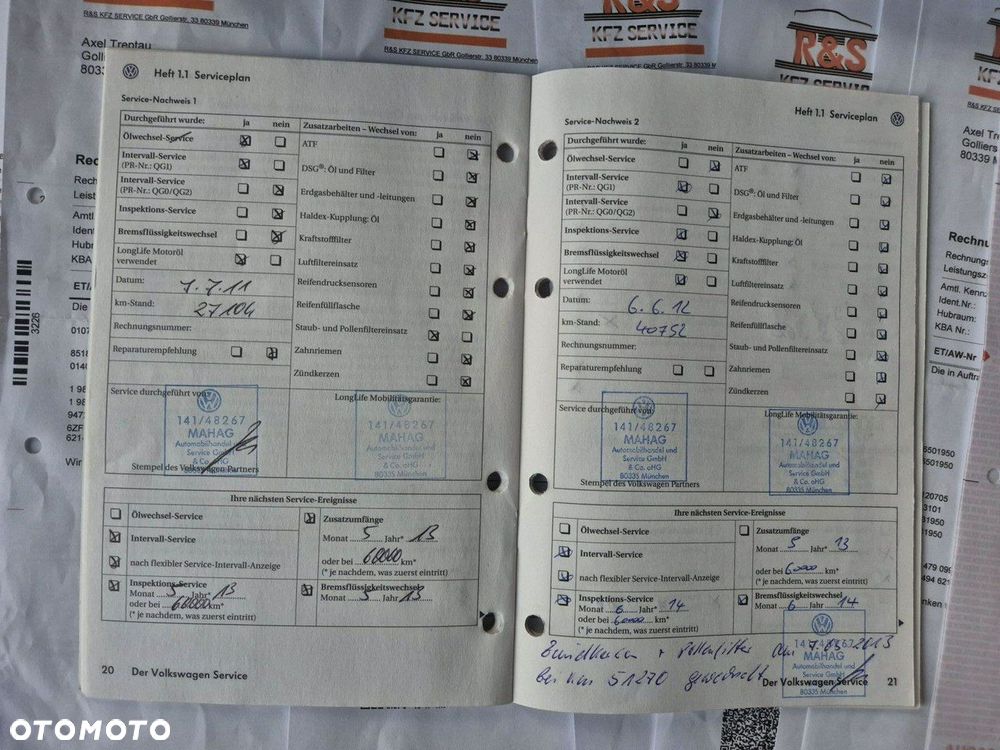 R&S KFZ SERVICE GbR Gollierstr. 33 80339 München
KFZ SERVICE
R&S KFZ SERVICE GbR Gollierstr. 33 80339 München
R&S
KFZ SERVICE
R&S KFZ SERVICE GbR Gollierstr. 33 80339 München
R&S
KFZ SERVICE
Axel Treptau
Golli
803
Heft 1.1 Serviceplan
Service-Nachweis 1
Durchgeführt wurde: ja nein
Ölwechsel-Service
Intervall-Service
(PR-Nr.: QG1)
Intervall-Service
(PR-Nr.: QG0/QG2)
Inspektions-Service
Bremsflüssigkeitswechsel
LongLife Motoröl
verwendet
Datum: 7.7.11
km-Stand: 27104
Rechnungsnummer:
Reparaturempfehlung
Zusatzarbeiten – Wechsel von: ja nein
ATF
DSG®: Öl und Filter
Erdgasbehälter und -leitungen
Haldex-Kupplung: Öl
Kraftstofffilter
Luftfiltereinsatz
Reifendrucksensoren
Reifenfüllflasche
Staub- und Pollenfiltereinsatz
Zahnriemen
Zündkerzen
Service durchgeführt von:
141/48267
MAHAG
Automobilhandel und
Service GmbH
& Co. oHG
80335 München
Stempel des Volkswagen Partners
LongLife Mobilitätsgarantie:
141/48267
MAHAG
Automobilhandel und
Service GmbH
& Co. oHG
80335 München
Ihre nächsten Service-Ereignisse
Ölwechsel-Service
Intervall-Service
nach flexibler Service-Intervall-Anzeige
Inspektions-Service
Monat 5 Jahr* 13
oder bei 60000 km*
(* je nachdem, was zuerst eintritt)
Zusatzumfänge
Monat 5 Jahr* 13
oder bei 60000 km*
(* je nachdem, was zuerst eintritt)
Bremsflüssigkeitswechsel
Monat 5 Jahr 13
20 Der Volkswagen Service
Heft 1.1 Serviceplan
Service-Nachweis 2
Durchgeführt wurde: ja nein
Ölwechsel-Service
Intervall-Service
(PR-Nr.: QG1)
Intervall-Service
(PR-Nr.: QG0/QG2)
Inspektions-Service
Bremsflüssigkeitswechsel
LongLife Motoröl
verwendet
Datum: 6.6.12
km-Stand: 40752
Rechnungsnummer:
Reparaturempfehlung
Zusatzarbeiten – Wechsel von: ja nein
ATF
DSG®: Öl und Filter
Erdgasbehälter und -leitungen
Haldex-Kupplung: Öl
Kraftstofffilter
Luftfiltereinsatz
Reifendrucksensoren
Reifenfüllflasche
Staub- und Pollenfiltereinsatz
Zahnriemen
Zündkerzen
Service durchgeführt von:
141/48267
MAHAG
Automobilhandel und
Service GmbH
& Co. oHG
80335 München
Stempel des Volkswagen Partners
LongLife Mobilitätsgarantie:
141/48267
MAHAG
Automobilhandel und
Service GmbH
& Co. oHG
80335 München
Ihre nächsten Service-Ereignisse
Ölwechsel-Service
Intervall-Service
nach flexibler Service-Intervall-Anzeige
Inspektions-Service
Monat 6 Jahr* 14
oder bei 60000 km*
(* je nachdem, was zuerst eintritt)
Zusatzumfänge
Monat 5 Jahr* 13
oder bei 60000 km*
(* je nachdem, was zuerst eintritt)
Bremsflüssigkeitswechsel
Monat 6 Jahr 14
+ Pollenfilter am 2013
bei km 51270 gewechselt
141/48267
MAHAG
Automobilhandel und
Service GmbH
& Co. oHG
80335 München
Der Volkswagen Service 21
Axel Tre
Golliers
80339 M
Rechnu
Rechnung
Leistungsz
Amtl. Kenn
Ident.Nr.:
Hubraum:
KBA Nr.:
ET/AW-Nr
Die in Auftra
3226
OTOMOTO